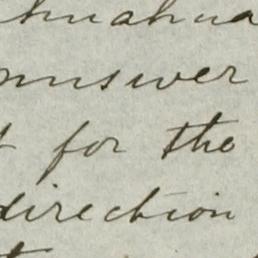 huahua
answer
for the
direction